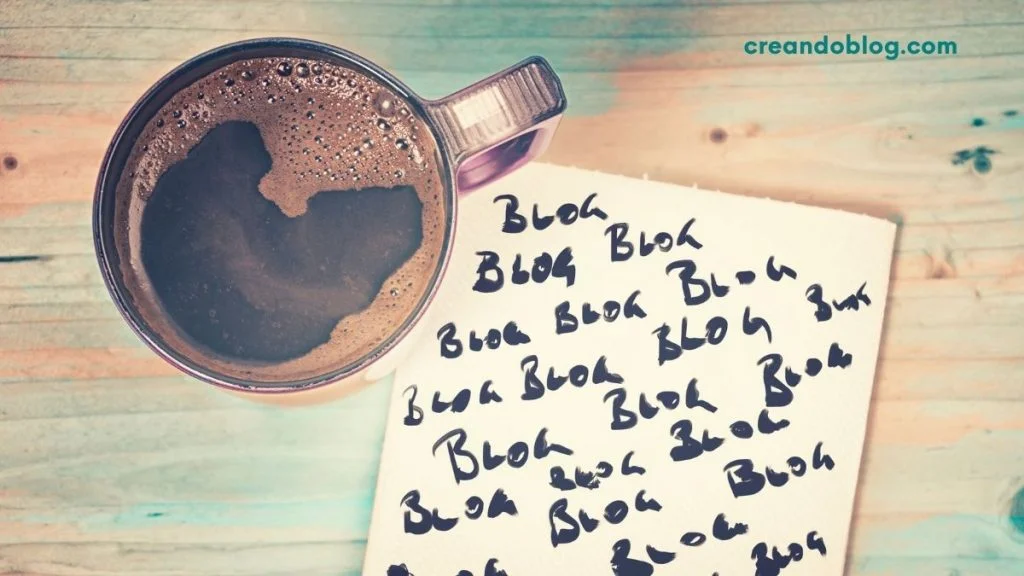 creandoblog.com
BLOG BLOG
BLOG BLOG
BLOG BLOG BLOG BLOG
BLOG BLOG BLOG BLOG
BLOG BLOG BLOG
BLOG BLOG BLOG
BLOG BLOG